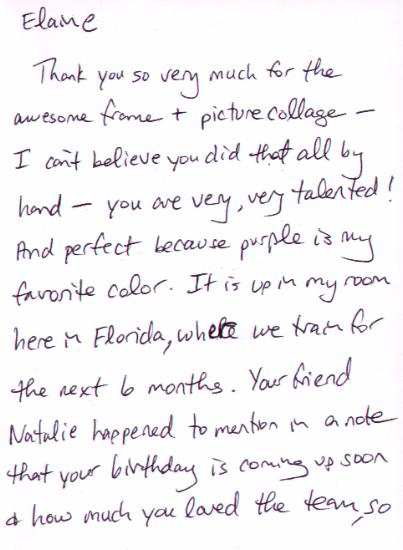 Elaine
Thank you so very much for the
awesome frame + picture collage –
I can't believe you did that all by
hand – you are very, very talented!
And perfect because purple is my
favorite color. It is up in my room
here in Florida, where we train for
the next 6 months. Your friend
Natalie happened to mention in a note
that your birthday is coming up soon
& how much you loved the team, so